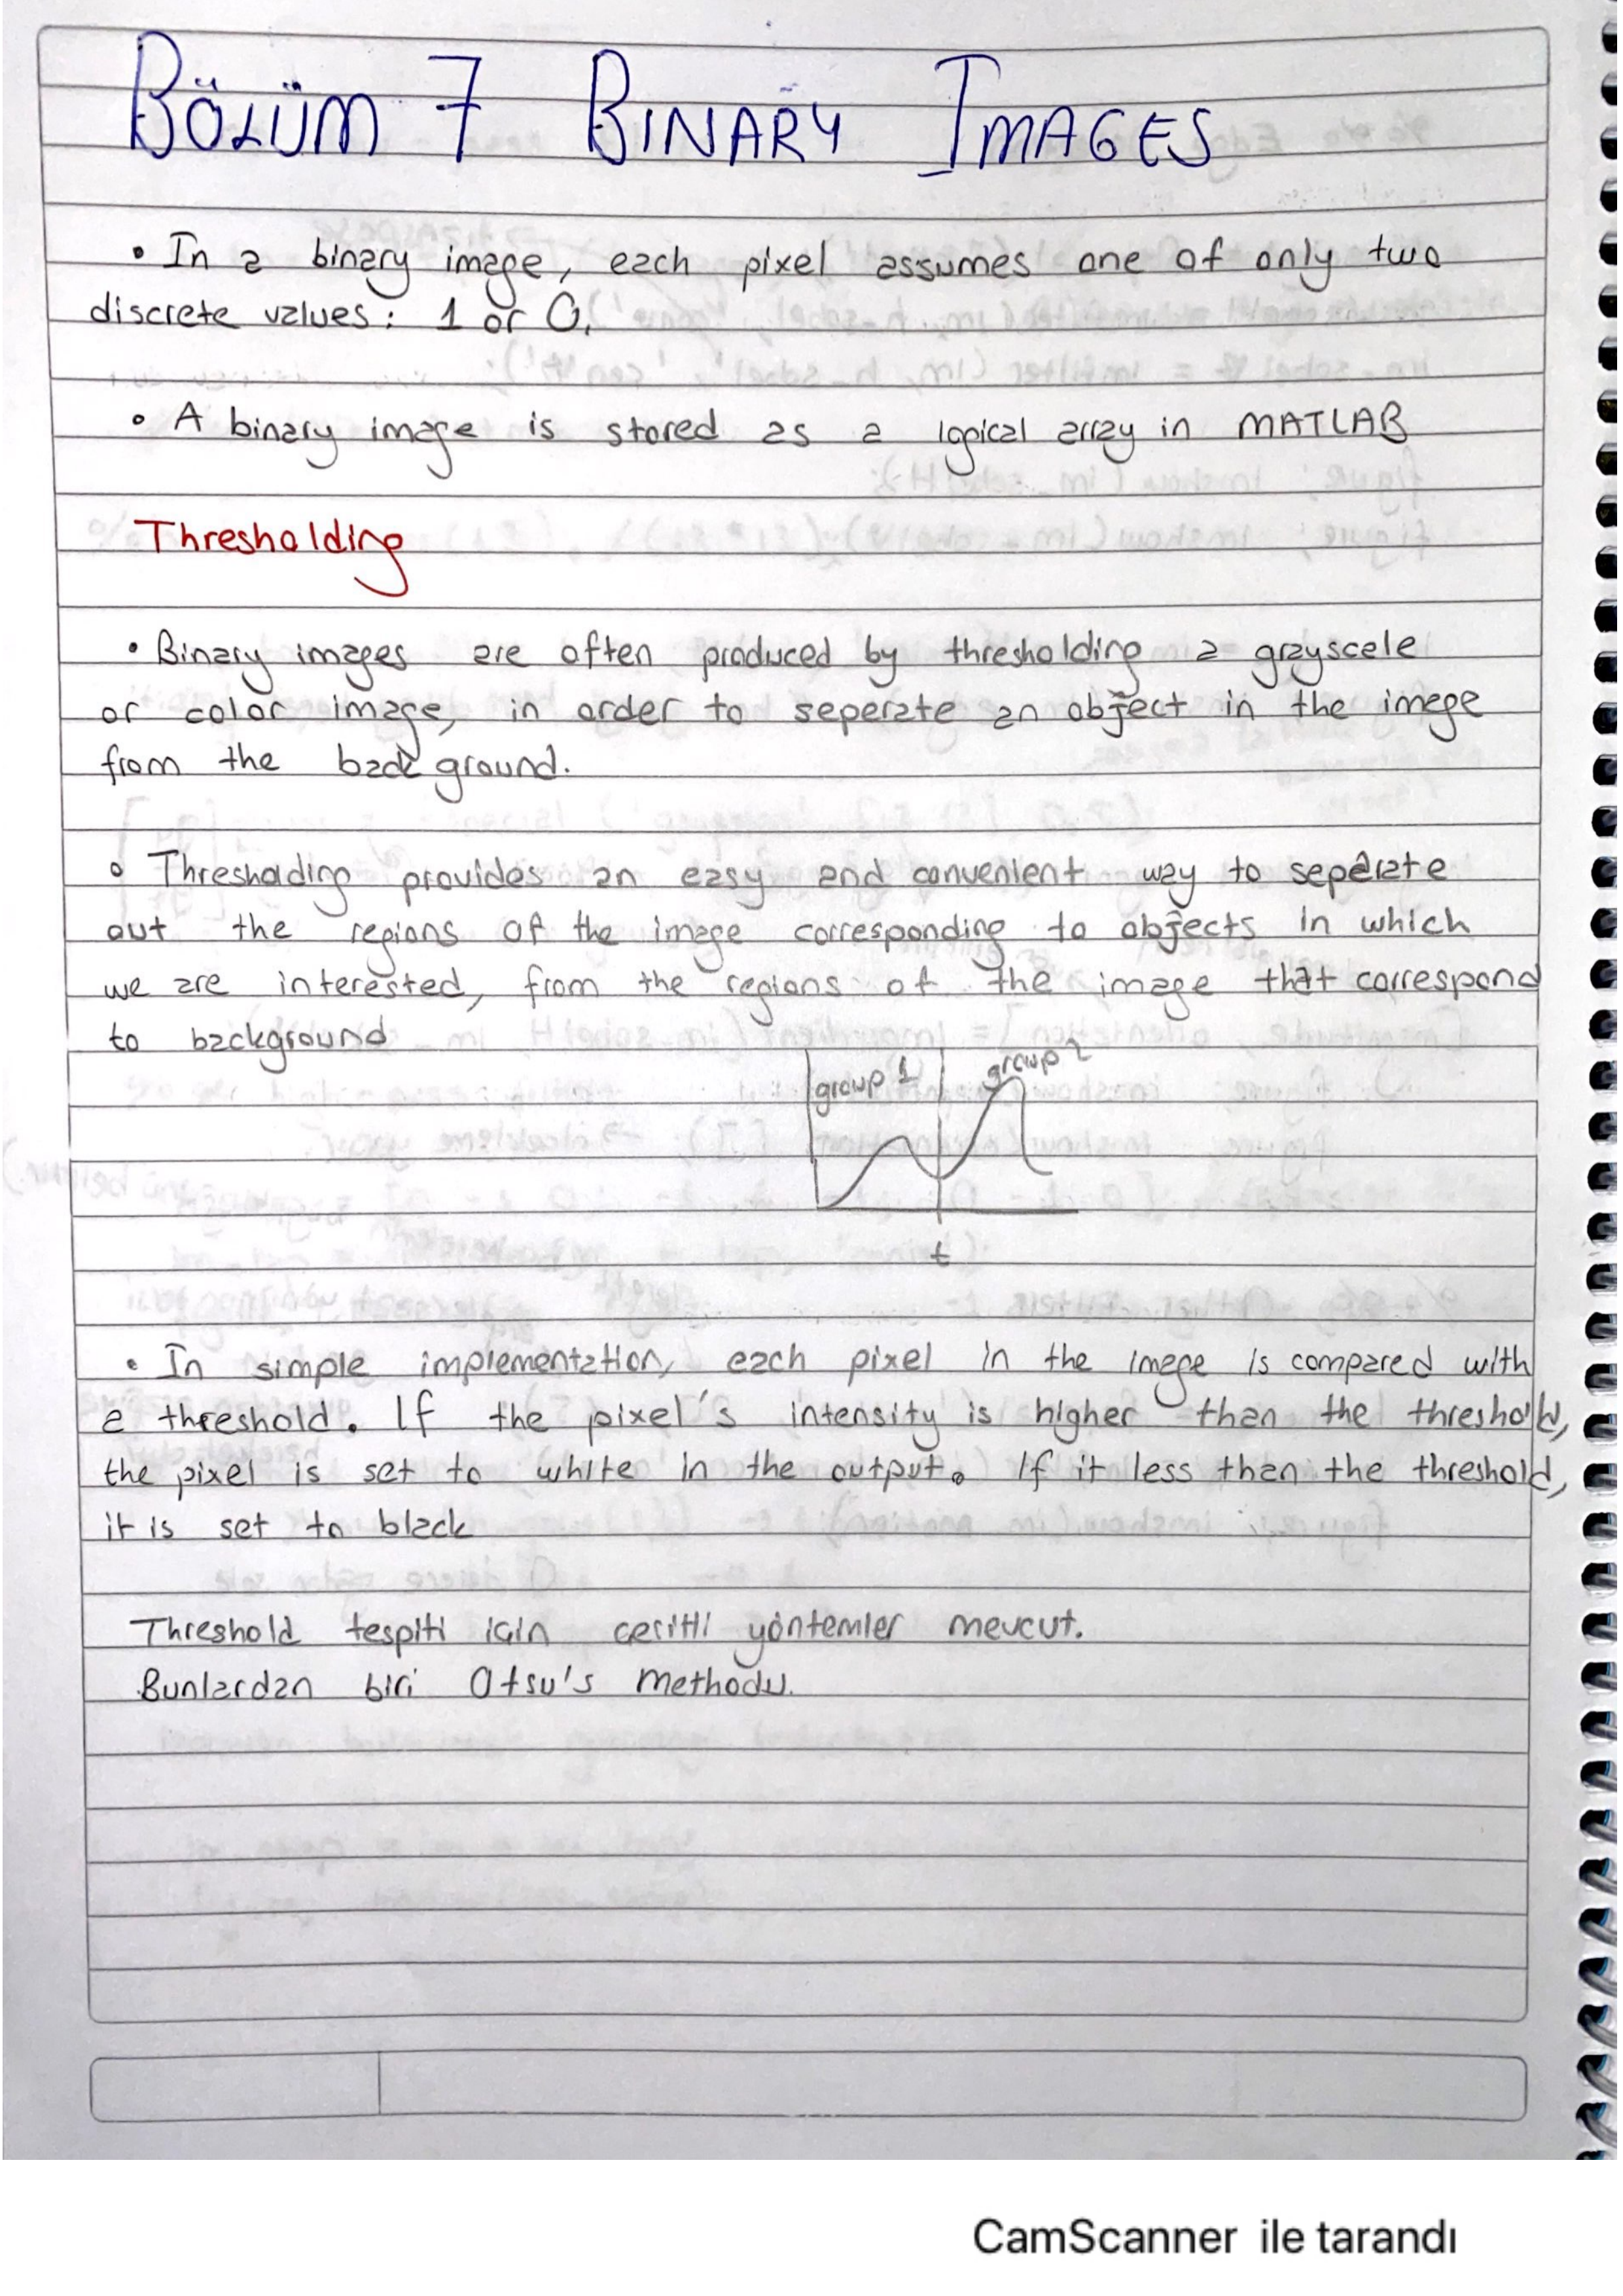 BÖLÜM 7 BINARY IMAGES
• In a binary image, each pixel assumes one of only two
discrete values: 1 or 0.
• A binary image is stored as a logical array in MATLAB
Thresholding
• Binary images are often produced by thresholding a grayscele
or color image, in order to seperate an object in the imege
from the back ground.
• Threshoding provides an easy and convenient way to seperate
out the regions of the image corresponding to objects in which
we are interested, from the regions of the image that correspond
to background
group 1 group 2
t
• In simple implementation, each pixel in the imege is compared with
a threshold. If the pixel's intensity is higher than the threshold,
the pixel is set to white in the output. If it less than the threshold,
it is set to black
Threshold tespiti için çeşitli yöntemler mevcut.
Bunlardan biri Otsu's Methodu.
CamScanner ile tarandı